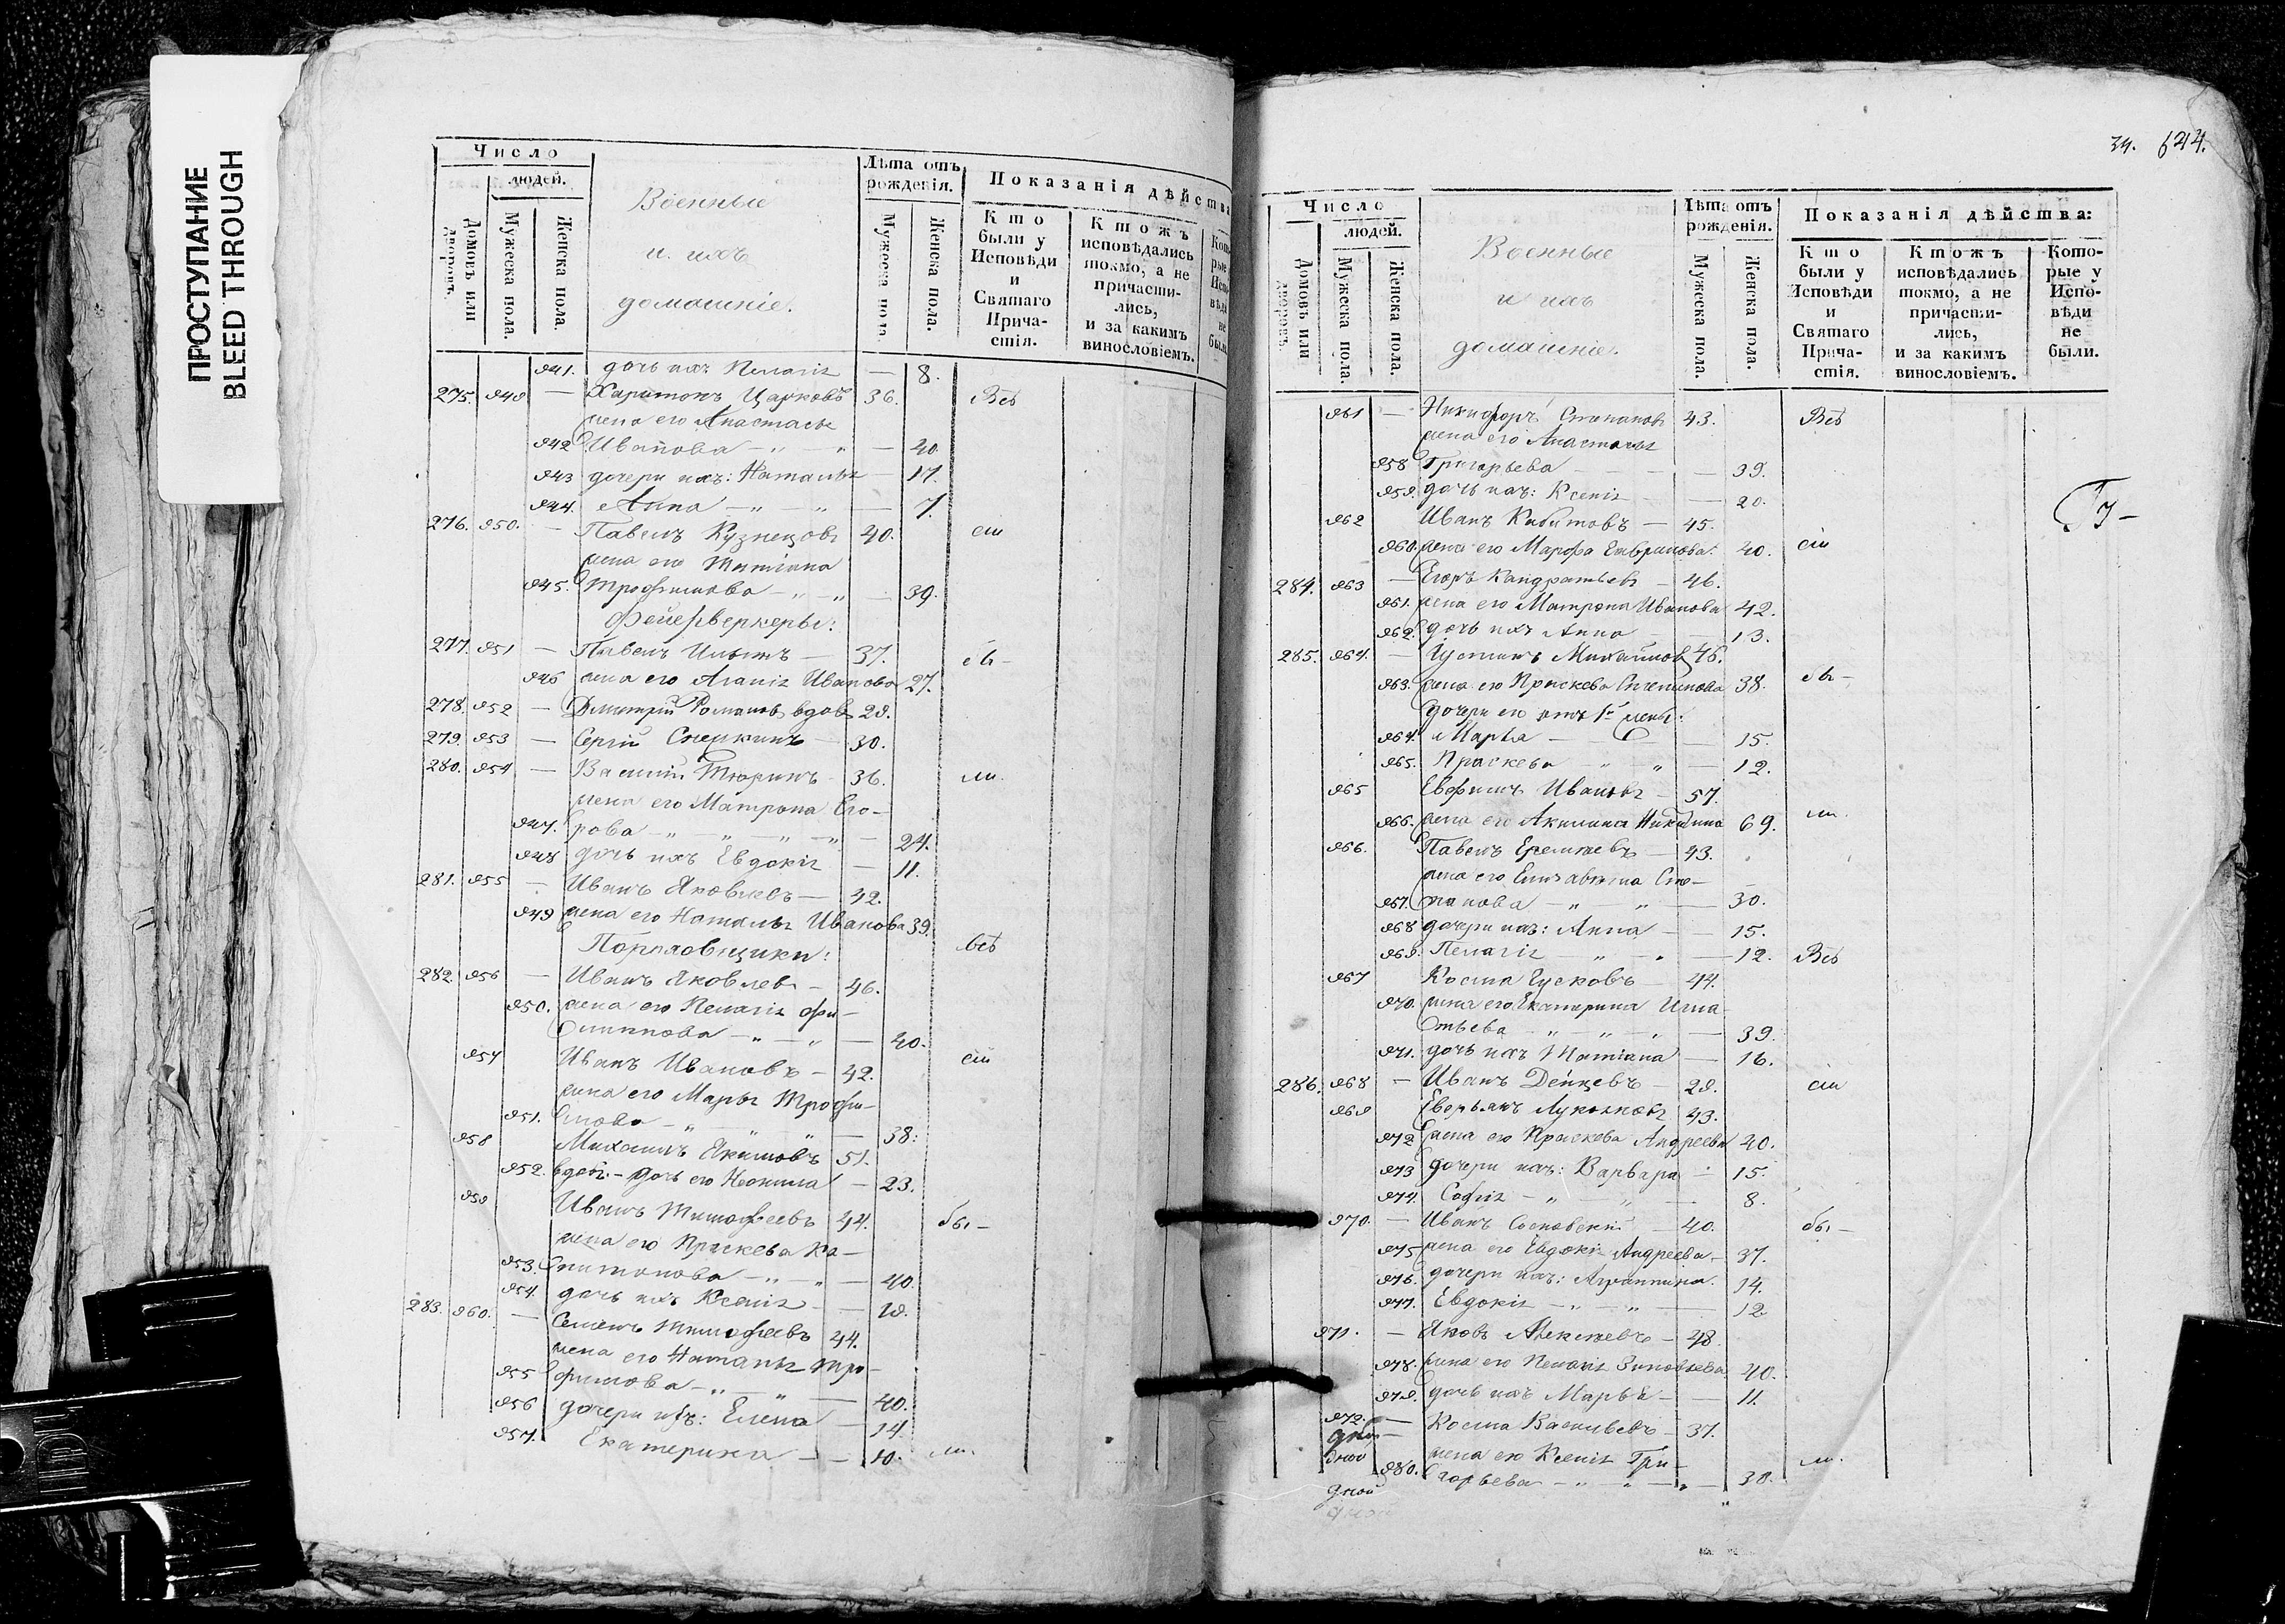 ПРОСТУПАНИЕ
BLEED THROUGH
Число
людей.
Домовъ или дворовъ.
Мужеска пола.
Женска пола.
Военные
и ихъ
домашніе.
Лѣта отъ рожденія.
Мужеска пола.
Женска пола.
Показанія дѣйства
Кто были у Исповѣди и Святаго Причастія.
Ктожъ исповѣдались токмо, а не причастились, и за какимъ винословіемъ.
941. дочь ихъ Пелагія — 8.
275. 949 — Харитонъ Царковъ 36. Всѣ
жена его Анастасья
942 Иванова — 40.
943 дочери ихъ: Наталья — 17.
944. Анна — 7.
276. 950. — Павелъ Кузнецовъ 40. сіи
жена его Татіана
945. Трофимова — 39.
Фейерверкеры:
277. 951 — Павелъ 37. бы—
946 жена его Агапія Иванова 27.
278. 952 — Дмитрій Романовъ вдовъ 29.
279. 953 — Сергій 30.
280. 954 — Василій Тюринъ 36. ли.
жена его Матрона Его-
947. рова — 24.
948 дочь ихъ Евдокія — 11.
281. 955 — Иванъ Яковлевъ — 42.
949 жена его Наталья Иванова 39.
всѣ
282. 956 — Иванъ Яковлевъ — 46.
950. жена его Пелагія Фи-
липпова — 40.
957 Иванъ Ивановъ — 42. сіи
жена его Марья Трофи-
951. мова — 38.
958 Михаилъ Якимовъ 51.
952. вдов. — дочь его Неонила — 23.
959 Иванъ Тимофеевъ 44. бы—
жена его Праскева Ка-
953. питонова — 40.
954. дочь ихъ Ксенія — 19.
283. 960. — Семенъ Тимофеевъ 44.
жена его Наталья Тро-
955 фимова — 40.
956 дочери ихъ: Елена — 14.
957. Екатерина — 10. ли.
34. 644.
Число
людей.
Домовъ или дворовъ.
Мужеска пола.
Женска пола.
Военные
и ихъ
домашніе.
Лѣта отъ рожденія.
Мужеска пола.
Женска пола.
Показанія дѣйства:
Кто были у Исповѣди и Святаго Причастія.
Ктожъ исповѣдались токмо, а не причастились, и за какимъ винословіемъ.
Которые у Исповѣди не были.
961 — Никифоръ Степановъ 43. Всѣ
жена его Анастасья
958 Григорьева — 39.
959. дочь ихъ: Ксенія — 20.
962 Иванъ — 45.
960. жена его Марфа 40. сіи
284. 963 — Егоръ Кандратьевъ — 46.
961. жена его Матрона Иванова 42.
962. дочь ихъ Анна — 13.
285. 964. — Михайловъ 46.
963. жена его Праскева Степанова 38. бы—
дочери его отъ 1й жены:
964. Марья — 15.
965. Праскева — 12.
965 Евфимъ Ивановъ — 57.
966. жена его Акилина Никитина 69. ли.
966. Павелъ Еремѣевъ — 43.
жена его Елизавета Сте-
967. панова — 30.
968 дочери ихъ: Анна — 15.
969. Пелагія — 12. Всѣ
967 Косма Гусковъ — 44.
970. жена его Екатерина Игна-
тьева — 39.
971. дочь ихъ Татіана — 16.
286. 968 — Иванъ 29. сіи
969 43.
972 жена его Праскева Андреева 40.
973 дочери ихъ: Варвара — 15.
974. Софія — 8.
970. — Иванъ Сосновскій 40. бы—
975 жена его Евдокія Андреева 37.
976. дочери ихъ: Агриппина 14.
977. Евдокія — 12.
971. — Яковъ Алексѣевъ — 48.
978. жена его Пелагія Зиновьева 40.
979. дочь ихъ Марья — 11.
972. — Косма Васильевъ — 37.
жена его Ксенія Гри- ли.
980. горьева — 38.